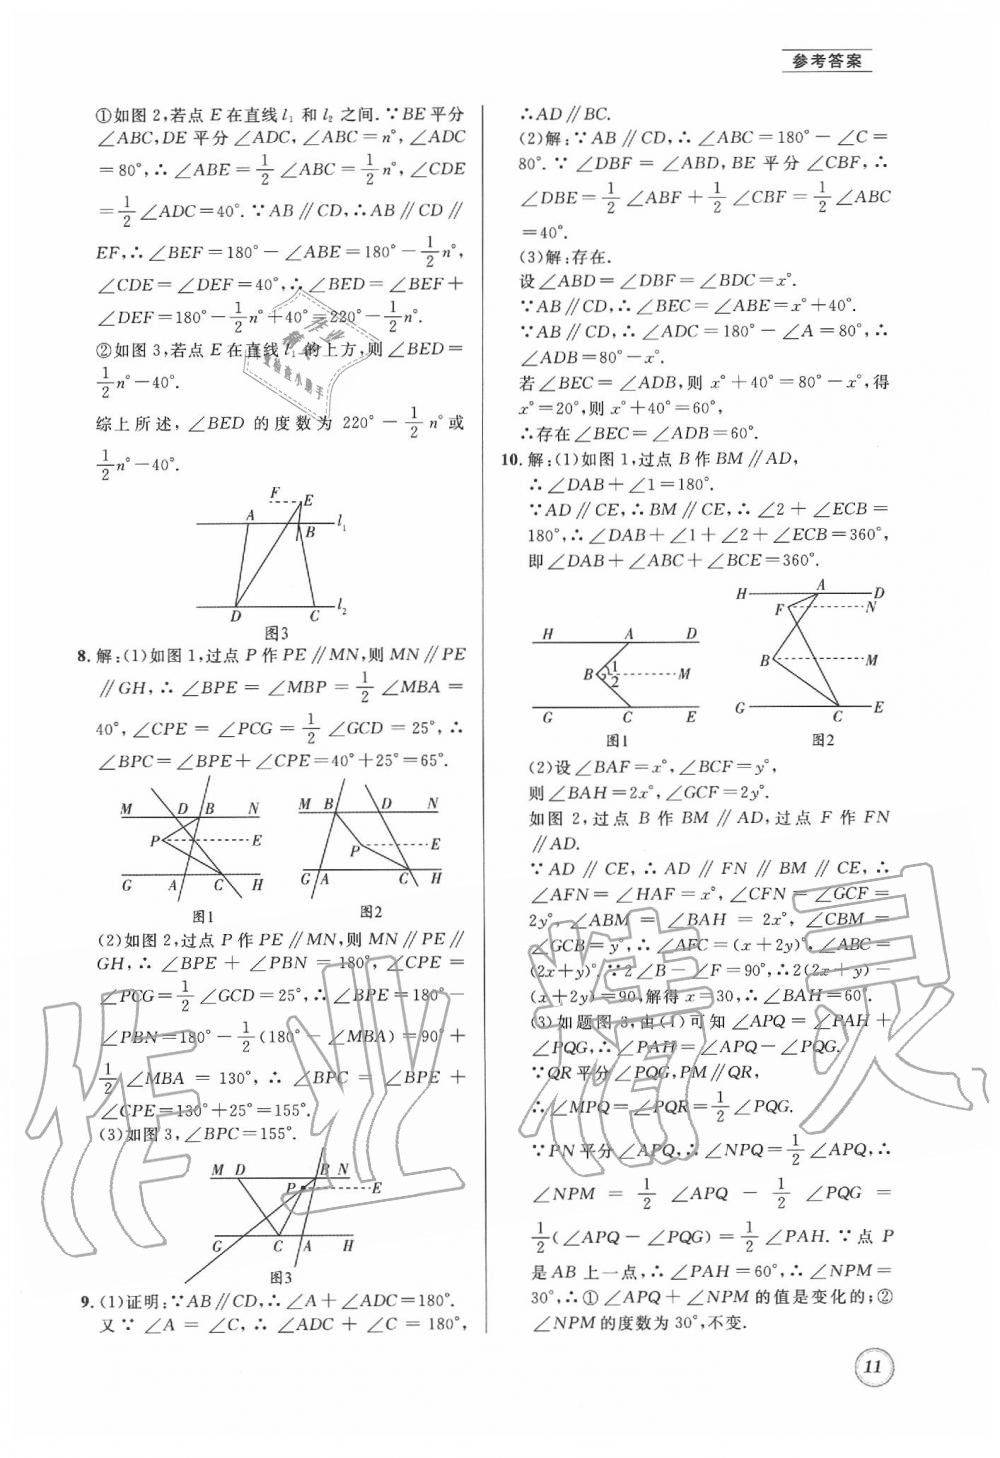 参考答案
①如图2,若点E在直线l₁和l₂之间.∵BE平分
∠ABC,DE平分∠ADC,∠ABC=n°,∠ADC
=80°,∴∠ABE=1/2∠ABC=1/2n°,∠CDE
=1/2∠ADC=40°.∵AB∥CD,∴AB∥CD∥
EF,∴∠BEF=180°-∠ABE=180°-1/2n°,
∠CDE=∠DEF=40°,∴∠BED=∠BEF+
∠DEF=180°-1/2n°+40°=220°-1/2n°.
②如图3,若点E在直线l₁的上方,则∠BED=
1/2n°-40°.
综上所述,∠BED的度数为220°-1/2n°或
1/2n°-40°.
F E
A B l₁
D C l₂
图3
8.解:(1)如图1,过点P作PE∥MN,则MN∥PE
∥GH,∴∠BPE=∠MBP=1/2∠MBA=
40°,∠CPE=∠PCG=1/2∠GCD=25°,∴
∠BPC=∠BPE+∠CPE=40°+25°=65°.
M D B N
P E
G A C H
图1
M B D N
P E
G A C H
图2
(2)如图2,过点P作PE∥MN,则MN∥PE∥
GH,∴∠BPE+∠PBN=180°,∠CPE=
∠PCG=1/2∠GCD=25°,∴∠BPE=180°-
∠PBN=180°-1/2(180°-∠MBA)=90°+
1/2∠MBA=130°,∴∠BPC=∠BPE+
∠CPE=130°+25°=155°.
(3)如图3,∠BPC=155°.
M D B N
P E
G C A H
图3
9.(1)证明:∵AB∥CD,∴∠A+∠ADC=180°.
又∵∠A=∠C,∴∠ADC+∠C=180°,
∴AD∥BC.
(2)解:∵AB∥CD,∴∠ABC=180°-∠C=
80°.∵∠DBF=∠ABD,BE平分∠CBF,∴
∠DBE=1/2∠ABF+1/2∠CBF=1/2∠ABC
=40°.
(3)解:存在.
设∠ABD=∠DBF=∠BDC=x°.
∵AB∥CD,∴∠BEC=∠ABE=x°+40°.
∵AB∥CD,∴∠ADC=180°-∠A=80°,∴
∠ADB=80°-x°.
若∠BEC=∠ADB,则x°+40°=80°-x°,得
x°=20°,则x°+40°=60°,
∴存在∠BEC=∠ADB=60°.
10.解:(1)如图1,过点B作BM∥AD,
∴∠DAB+∠1=180°.
∵AD∥CE,∴BM∥CE,∴∠2+∠ECB=
180°,∴∠DAB+∠1+∠2+∠ECB=360°,
即∠DAB+∠ABC+∠BCE=360°.
H A D
B 1 2 M
G C E
图1
H A D
F N
B M
G C E
图2
(2)设∠BAF=x°,∠BCF=y°,
则∠BAH=2x°,∠GCF=2y°.
如图2,过点B作BM∥AD,过点F作FN
∥AD.
∵AD∥CE,∴AD∥FN∥BM∥CE,∴
∠AFN=∠HAF=x°,∠CFN=∠GCF=
2y°,∠ABM=∠BAH=2x°,∠CBM=
∠GCB=y°,∴∠AFC=(x+2y)°,∠ABC=
(2x+y)°.∵2∠B-∠F=90°,∴2(2x+y)-
(x+2y)=90,解得x=30,∴∠BAH=60°.
(3)如题图3,由(1)可知∠APQ=∠PAH+
∠PQG,∴∠PAH=∠APQ-∠PQG.
∵QR平分∠PQG,PM∥QR,
∴∠MPQ=∠PQR=1/2∠PQG.
∵PN平分∠APQ,∴∠NPQ=1/2∠APQ,∴
∠NPM=1/2∠APQ-1/2∠PQG=
1/2(∠APQ-∠PQG)=1/2∠PAH.∵点P
是AB上一点,∴∠PAH=60°,∴∠NPM=
30°,∴①∠APQ+∠NPM的值是变化的;②
∠NPM的度数为30°,不变.
11
作业精灵